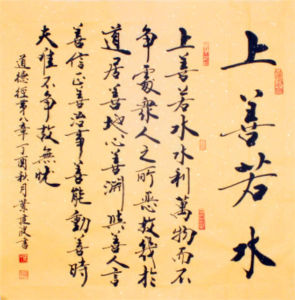 上善若水
上善若水水利萬物而不
争處衆人之所惡故幾於
道居善地心善渊與善人言
善信正善治事善能動善時
夫唯不争故無忧
道德經第八章丁酉秋月葉建波書